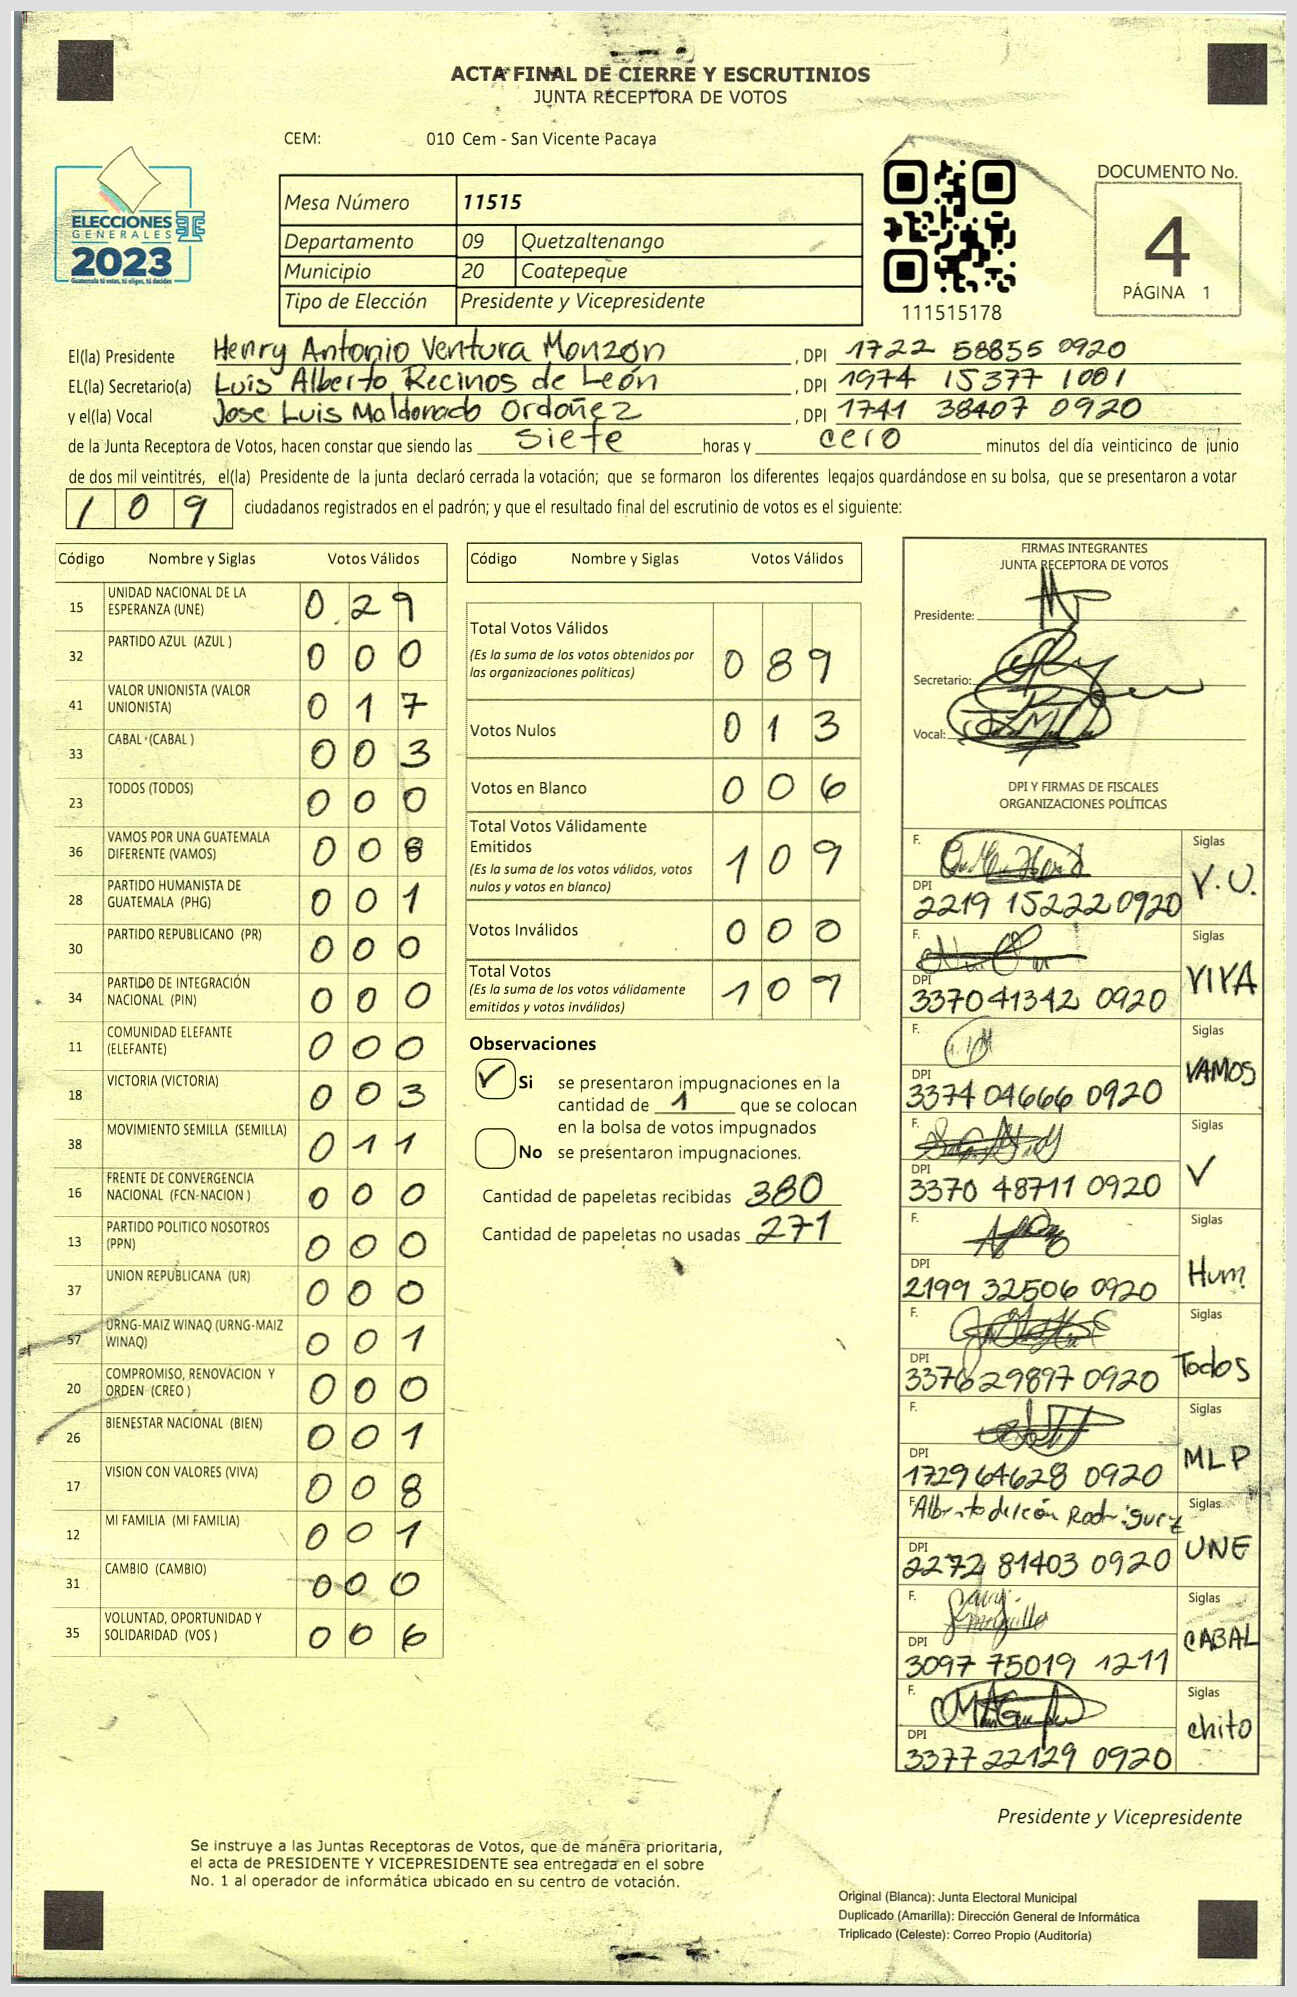 ACTA FINAL DE CIERRE Y ESCRUTINIOS
JUNTA RECEPTORA DE VOTOS
CEM: 010 Cem - San Vicente Pacaya
ELECCIONES
GENERALES
2023
Guatemala tú votas, tú eliges, tú decides
Mesa Número 11515
Departamento 09 Quetzaltenango
Municipio 20 Coatepeque
Tipo de Elección Presidente y Vicepresidente
111515178
DOCUMENTO No.
4
PÁGINA 1
El(la) Presidente Henry Antonio Ventura Monzón , DPI 1722 58855 0920
EL(la) Secretario(a) Luis Alberto Recinos de León , DPI 1974 15377 1001
y el(la) Vocal Jose Luis Maldonado Ordoñez , DPI 1741 38407 0920
de la Junta Receptora de Votos, hacen constar que siendo las siete horas y cero minutos del día veinticinco de junio
de dos mil veintitrés, el(la) Presidente de la junta declaró cerrada la votación; que se formaron los diferentes legajos quardándose en su bolsa, que se presentaron a votar
109 ciudadanos registrados en el padrón; y que el resultado final del escrutinio de votos es el siguiente:
Código Nombre y Siglas Votos Válidos
15 UNIDAD NACIONAL DE LA
ESPERANZA (UNE) 0 29
32 PARTIDO AZUL (AZUL ) 0 0 0
41 VALOR UNIONISTA (VALOR
UNIONISTA) 0 1 7
33 CABAL (CABAL ) 0 0 3
23 TODOS (TODOS) 0 0 0
36 VAMOS POR UNA GUATEMALA
DIFERENTE (VAMOS) 0 0 8
28 PARTIDO HUMANISTA DE
GUATEMALA (PHG) 0 0 1
30 PARTIDO REPUBLICANO (PR) 0 0 0
34 PARTIDO DE INTEGRACIÓN
NACIONAL (PIN) 0 0 0
11 COMUNIDAD ELEFANTE
(ELEFANTE) 0 0 0
18 VICTORIA (VICTORIA) 0 0 3
38 MOVIMIENTO SEMILLA (SEMILLA) 0 1 1
16 FRENTE DE CONVERGENCIA
NACIONAL (FCN-NACION ) 0 0 0
13 PARTIDO POLITICO NOSOTROS
(PPN) 0 0 0
37 UNION REPUBLICANA (UR) 0 0 0
57 URNG-MAIZ WINAQ (URNG-MAIZ
WINAQ) 0 0 1
20 COMPROMISO, RENOVACION Y
ORDEN (CREO ) 0 0 0
26 BIENESTAR NACIONAL (BIEN) 0 0 1
17 VISION CON VALORES (VIVA) 0 0 8
12 MI FAMILIA (MI FAMILIA) 0 0 1
31 CAMBIO (CAMBIO) 0 0 0
35 VOLUNTAD, OPORTUNIDAD Y
SOLIDARIDAD (VOS ) 0 0 6
Código Nombre y Siglas Votos Válidos
Total Votos Válidos
(Es la suma de los votos obtenidos por
las organizaciones políticas) 0 8 9
Votos Nulos 0 1 3
Votos en Blanco 0 0 6
Total Votos Válidamente
Emitidos
(Es la suma de los votos válidos, votos
nulos y votos en blanco) 1 0 9
Votos Inválidos 0 0 0
Total Votos
(Es la suma de los votos válidamente
emitidos y votos inválidos) 1 0 9
Observaciones
✓ Si se presentaron impugnaciones en la
cantidad de 1 que se colocan
en la bolsa de votos impugnados
No se presentaron impugnaciones.
Cantidad de papeletas recibidas 380
Cantidad de papeletas no usadas 271
FIRMAS INTEGRANTES
JUNTA RECEPTORA DE VOTOS
Presidente:
Secretario:
Vocal:
DPI Y FIRMAS DE FISCALES
ORGANIZACIONES POLÍTICAS
F. Siglas
DPI V.U.
2219 15222 0920
F. Siglas
DPI VIVA
3370 41342 0920
F. Siglas
DPI VAMOS
3374 04666 0920
F. Siglas
DPI V
3370 48711 0920
F. Siglas
DPI Hum.
2199 32506 0920
F. Siglas
DPI Todos
3376 29897 0920
F. Siglas
DPI MLP
1729 64628 0920
F. Alberto de león Rodriguez Siglas
DPI UNE
2272 81403 0920
F. Siglas
DPI CABAL
3097 75019 1211
F. Siglas
DPI chito
3377 22129 0920
Presidente y Vicepresidente
Se instruye a las Juntas Receptoras de Votos, que de manera prioritaria,
el acta de PRESIDENTE Y VICEPRESIDENTE sea entregada en el sobre
No. 1 al operador de informática ubicado en su centro de votación.
Original (Blanca): Junta Electoral Municipal
Duplicado (Amarilla): Dirección General de Informática
Triplicado (Celeste): Correo Propio (Auditoría)